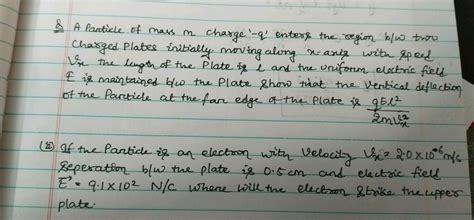 Q A Particle of mass m charge '-q' enters the region b/w two
charged Plates initially moving along x-axis with speed
Vx the length of the Plate is l and the uniform electric field
E is maintained b/w the Plate show that the vertical deflection
of the Particle at the far edge of the Plate is qEl²/2mVx²
(2) If the Particle is an electron with velocity Vx = 2.0 x 10⁶ m/s
Seperation b/w the plate is 0.5 cm and electric field
E = 9.1 x 10² N/C where will the electron strike the upper
plate.